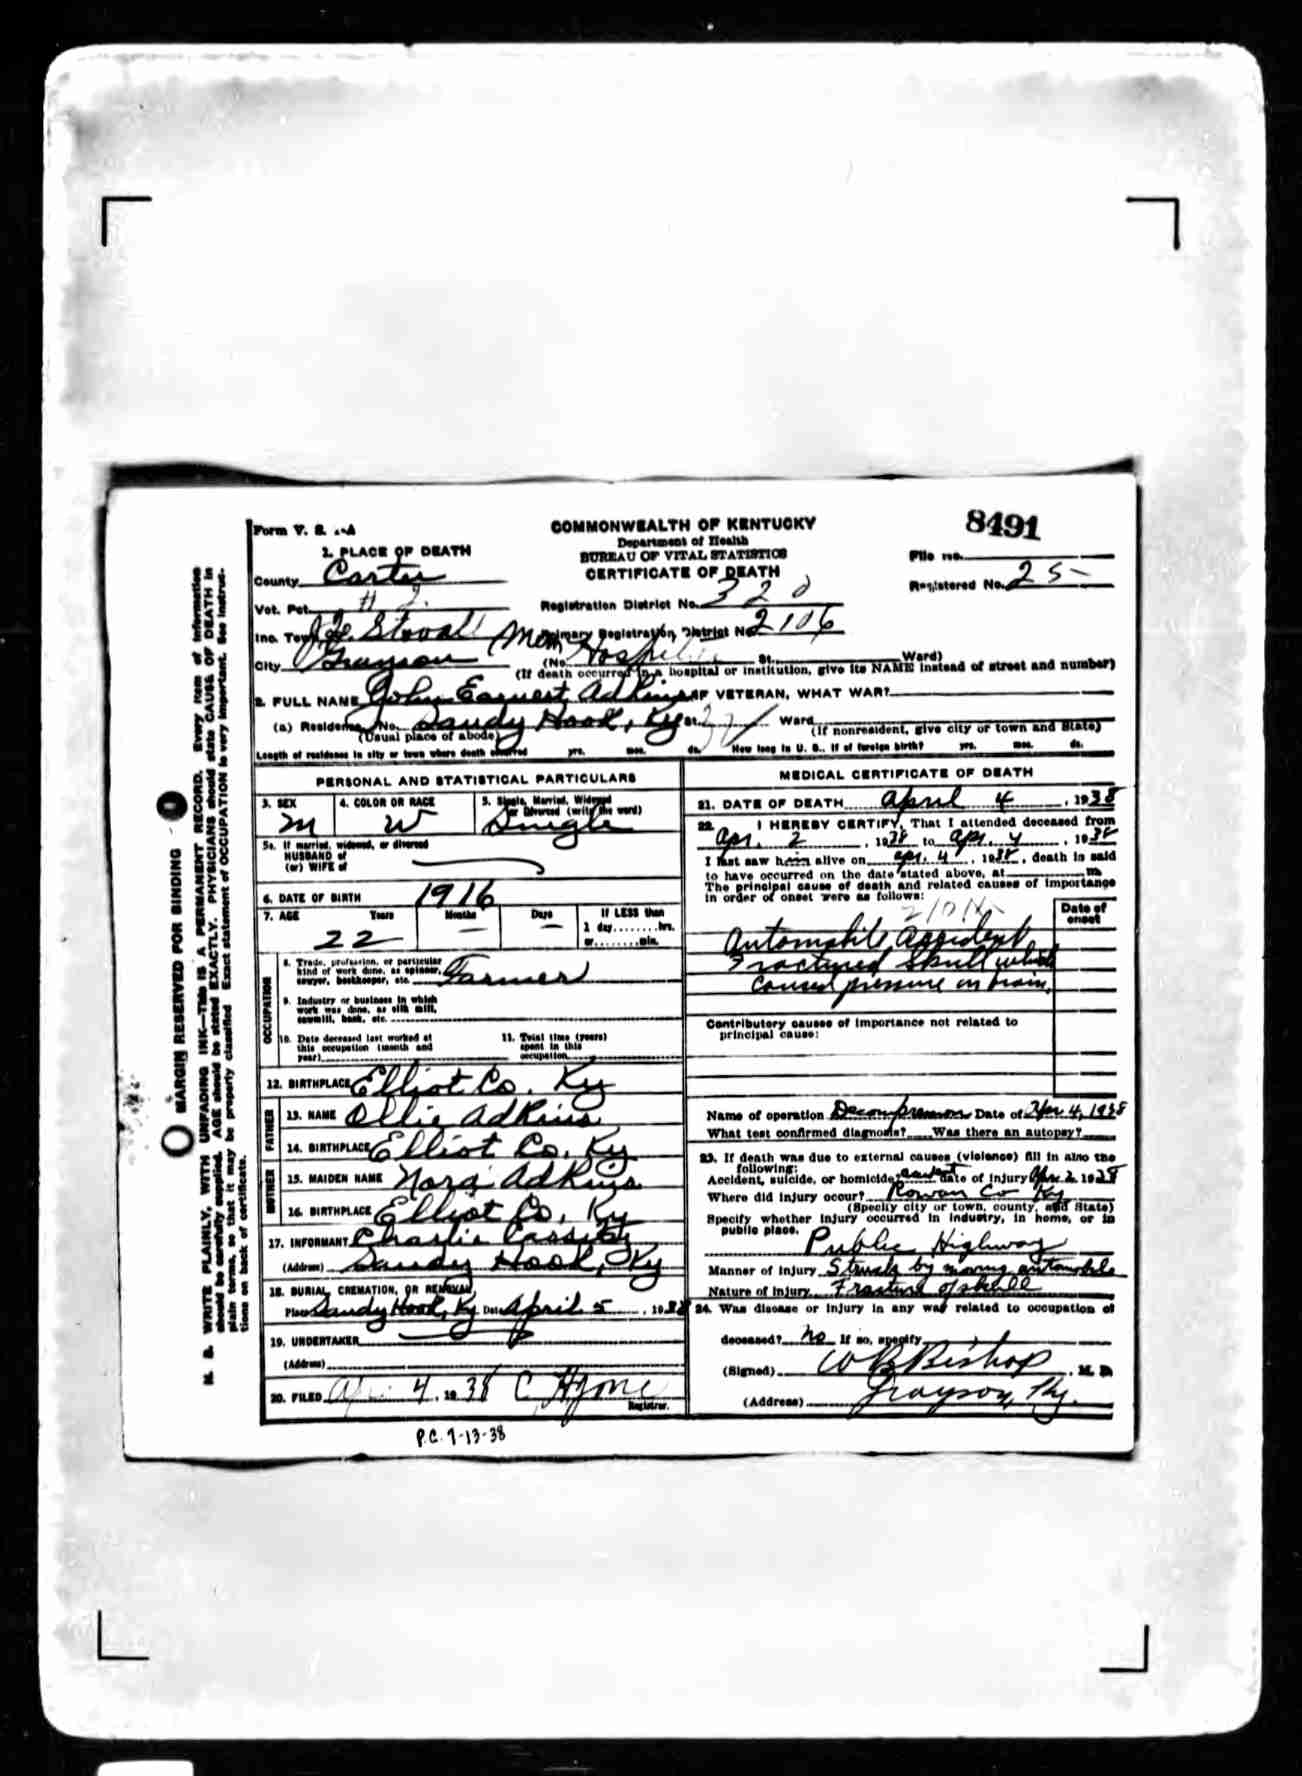 Form V. S. 1-A
COMMONWEALTH OF KENTUCKY
Department of Health
BUREAU OF VITAL STATISTICS
CERTIFICATE OF DEATH
8491
File no.
Registered No. 25
1. PLACE OF DEATH
County Carter
Vot. Pct. # 2.
Registration District No. 320
Inc. Town J. Q. Stovall Mem Hospital
Primary Registration District No. 2106
City Grayson (No. St. Ward)
(If death occurred in a hospital or institution, give its NAME instead of street and number)
2. FULL NAME John Earnest Adkins IF VETERAN, WHAT WAR?
(a) Residence, No. Sandy Hook, Ky St. Ward
(Usual place of abode) (If nonresident, give city or town and State)
Length of residence in city or town where death occurred yrs. mos. ds. How long in U. S., if of foreign birth? yrs. mos. ds.
PERSONAL AND STATISTICAL PARTICULARS
3. SEX M
4. COLOR OR RACE W
5. Single, Married, Widowed or Divorced (write the word) Single
5a. If married, widowed, or divorced
HUSBAND of
(or) WIFE of
6. DATE OF BIRTH 1916
7. AGE Years 22 Months — Days — If LESS than
1 day........hrs.
or........min.
OCCUPATION
8. Trade, profession, or particular kind of work done, as spinner, sawyer, bookkeeper, etc. Farmer
9. Industry or business in which work was done, as silk mill, sawmill, bank, etc.
10. Date deceased last worked at this occupation (month and year)
11. Total time (years) spent in this occupation
12. BIRTHPLACE Elliot Co. Ky
FATHER
13. NAME Ollie Adkins
14. BIRTHPLACE Elliot Co, Ky
MOTHER
15. MAIDEN NAME Nora Adkins
16. BIRTHPLACE Elliot Co, Ky
17. INFORMANT Charlie Cassity
(Address) Sandy Hook, Ky
18. BURIAL, CREMATION, OR REMOVAL
Place Sandy Hook, Ky Date April 5, 1938
19. UNDERTAKER
(Address)
20. FILED Apr 4, 1938 C. H. Registrar.
MEDICAL CERTIFICATE OF DEATH
21. DATE OF DEATH April 4, 1938
22. I HEREBY CERTIFY, That I attended deceased from
Apr. 2, 1938 to Apr. 4, 1938
I last saw him alive on Apr. 4, 1938, death is said
to have occurred on the date stated above, at m
The principal cause of death and related causes of importance
in order of onset were as follows:
Date of onset
Automobile Accident
Fractured Skull which
caused pressure on brain.
Contributory causes of importance not related to
principal cause:
Name of operation Decompression Date of Apr 4, 1938
What test confirmed diagnosis? Was there an autopsy?
23. If death was due to external causes (violence) fill in also the
following:
Accident, suicide, or homicide? accident Date of injury Apr. 2 1938
Where did injury occur? Rowan Co Ky
(Specify city or town, county, and State)
Specify whether injury occurred in industry, in home, or in
public place.
Public Highway
Manner of injury Struck by moving automobile
Nature of injury Fracture of skull
24. Was disease or injury in any way related to occupation of
deceased? No If so, specify
(Signed) W B Bishop, M. D.
(Address) Grayson, Ky.
P.C. 7-13-38
MARGIN RESERVED FOR BINDING
N. B. WRITE PLAINLY, WITH UNFADING INK—THIS IS A PERMANENT RECORD. Every item of information
should be carefully supplied. AGE should be stated EXACTLY. PHYSICIANS should state CAUSE OF DEATH in
plain terms, so that it may be properly classified. Exact statement of OCCUPATION is very important. See instruc-
tions on back of certificate.